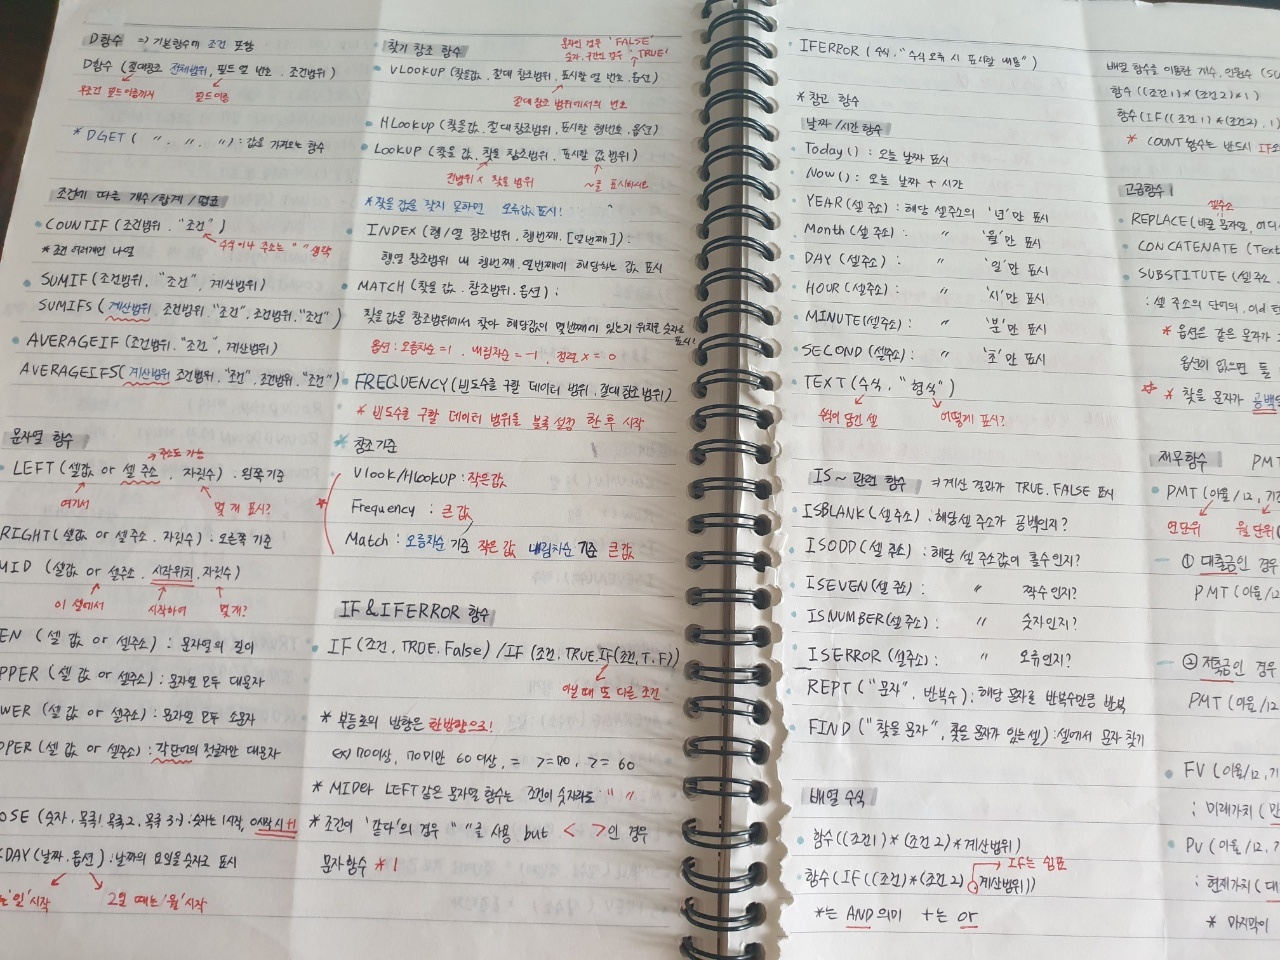 D함수 => 기본함수에 조건 포함
D함수 (절대참조 전체범위, 필드 열 번호, 조건범위)
무조건 필드이름까지
필드이름
* DGET ( 〃 , 〃 , 〃 ) : 값을 가져오는 함수
조건에 따른 개수/합계/평균
• COUNTIF (조건범위, "조건")
수식이나 주소는 " " 생략
* 조건 여러개면 나열
• SUMIF (조건범위, "조건", 계산범위)
SUMIFS (계산범위, 조건범위, "조건", 조건범위, "조건")
• AVERAGEIF (조건범위, "조건", 계산범위)
AVERAGEIFS (계산범위, 조건범위, "조건", 조건범위, "조건")
문자열 함수
주소도 가능
• LEFT (셀값 or 셀 주소, 자릿수) : 왼쪽 기준
여기서
몇 개 표시?
RIGHT (셀 값 or 셀 주소, 자릿수) : 오른쪽 기준
MID (셀값 or 셀주소, 시작위치, 자릿수)
이 셀에서
시작하여
몇개?
EN (셀 값 or 셀주소) : 문자열의 길이
PPER (셀 값 or 셀주소) : 문자열 모두 대문자
WER (셀 값 or 셀주소) : 문자열 모두 소문자
OPER (셀 값 or 셀주소) : 각단어의 첫글자만 대문자
OSE (숫자, 목록1, 목록2, 목록3..) : 숫자는 1시작, 0시작시 +1
KDAY (날짜, 옵션) : 날짜의 요일을 숫자로 표시
'일' 시작
2일 때는 '월' 시작
찾기 참조 함수
문자인 경우 'FALSE'
숫자, 구간인 경우 'TRUE'
• VLOOKUP (찾을값, 절대 참조범위, 표시할 열 번호, 옵션)
절대 참조 범위에서의 번호
• HLOOKUP (찾을값, 절대 참조범위, 표시할 행번호, 옵션)
• LOOKUP (찾을 값, 찾을 참조범위, 표시할 값 범위)
전범위 x 찾을 범위
~를 표시하시오
* 찾을 값을 찾지 못하면 오류값 표시!
• INDEX (행/열 참조범위, 행번째, [열번째]) :
행열 참조범위 내 행번째, 열번째에 해당하는 값 표시
• MATCH (찾을 값, 참조범위, 옵션) :
찾을값을 참조범위에서 찾아 해당값이 몇번째에 있는지 위치를 숫자로 표시!
옵션 : 오름차순 = 1, 내림차순 = -1, 정렬 x = 0
• FREQUENCY (빈도수를 구할 데이터 범위, 절대참조범위)
* 빈도수를 구할 데이터 범위를 블록설정 한 후 시작
* 참조기준
Vlook/Hlookup : 작은값
Frequency : 큰 값
Match : 오름차순 기준 작은 값, 내림차순 기준 큰 값
IF & IFERROR 함수
• IF (조건, TRUE, False) / IF (조건, TRUE, IF(조건, T, F))
아닐 때 또 다른 조건
* 부등호의 방향은 한방향으로!
* MID와 LEFT 같은 문자열 함수는 조건이 숫자라도 " "
* 조건이 '같다'의 경우 " "를 사용 but < >인 경우
문자함수 * 1
• IFERROR (수식, "수식 오류 시 표시할 내용")
* 참고 함수
날짜/시간 함수
• Today() : 오늘 날짜 표시
• Now() : 오늘 날짜 + 시간
• YEAR (셀 주소) : 해당 셀주소의 '년'만 표시
• Month (셀 주소) : 〃 '월'만 표시
• DAY (셀주소) : 〃 '일'만 표시
• HOUR (셀주소) : 〃 '시'만 표시
• MINUTE (셀주소) : 〃 '분'만 표시
• SECOND (셀주소) : 〃 '초'만 표시
• TEXT (수식, "형식")
수식이 담긴 셀
어떻게 표시?
IS~ 관련 함수 → 계산 결과가 TRUE, FALSE 표시
• ISBLANK (셀주소) : 해당셀 주소가 공백인지?
• ISODD (셀 주소) : 해당 셀 주소값이 홀수인지?
• ISEVEN (셀 주소) : 〃 짝수인지?
• ISNUMBER (셀주소) : 〃 숫자인지?
ISERROR (셀주소) : 〃 오류인지?
• REPT ("문자", 반복수) : 해당 문자를 반복수만큼 반복
• FIND ("찾을 문자", 찾을 문자가 있는셀) : 셀에서 문자 찾기
배열 수식
• 함수((조건1) * (조건2) * 계산범위)
IF는 쉼표
• 함수(IF((조건) * (조건2), 계산범위))
*는 AND 의미 +는 or
배열 함수를 이용한 개수, 인원수 (SU
함수((조건1) * (조건2) * 1)
함수(IF((조건1) * (조건2), 1)
* COUNT 함수는 반드시 IF와
고급함수
셀주소
• REPLACE (바꿀 문자열, 어디
• CONCATENATE (Text
• SUBSTITUTE (셀주소,
: 셀 주소의 단어의, 어떤
* 옵션은 같은 문자가
옵션이 없으면 둘
* 찾을 문자가 공백
재무함수 PMT
• PMT (이율/12, 기간
연단위
월 단위
① 대출금인 경우
PMT (이율/12
② 저축금인 경우
PMT (이율/12
• FV (이율/12, 기
: 미래가치 (만
• PV (이율/12, 기
: 현재가치 (대
* 마지막이